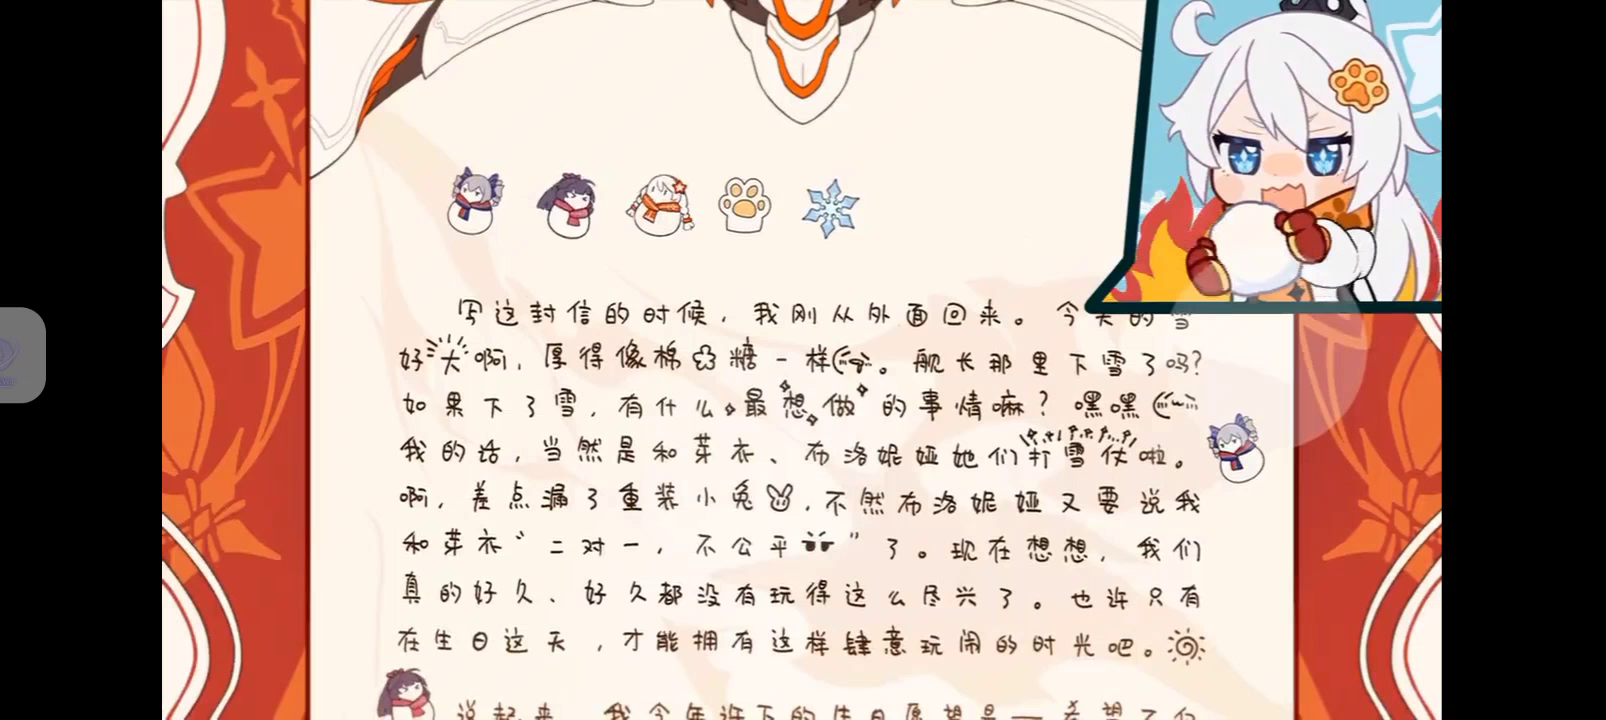 写这封信的时候，我刚从外面回来。今天的雪
好大啊，厚得像棉花糖一样。舰长那里下雪了吗？
如果下了雪，有什么最想做的事情嘛？嘿嘿
我的话，当然是和芽衣、布洛妮娅她们打雪仗啦。
啊，差点漏了重装小兔，不然布洛妮娅又要说我
和芽衣“二对一，不公平”了。现在想想，我们
真的好久、好久都没有玩得这么尽兴了。也许只有
在生日这天，才能拥有这样肆意玩闹的时光吧。
说起来，我今年许下的生日愿望是——希望